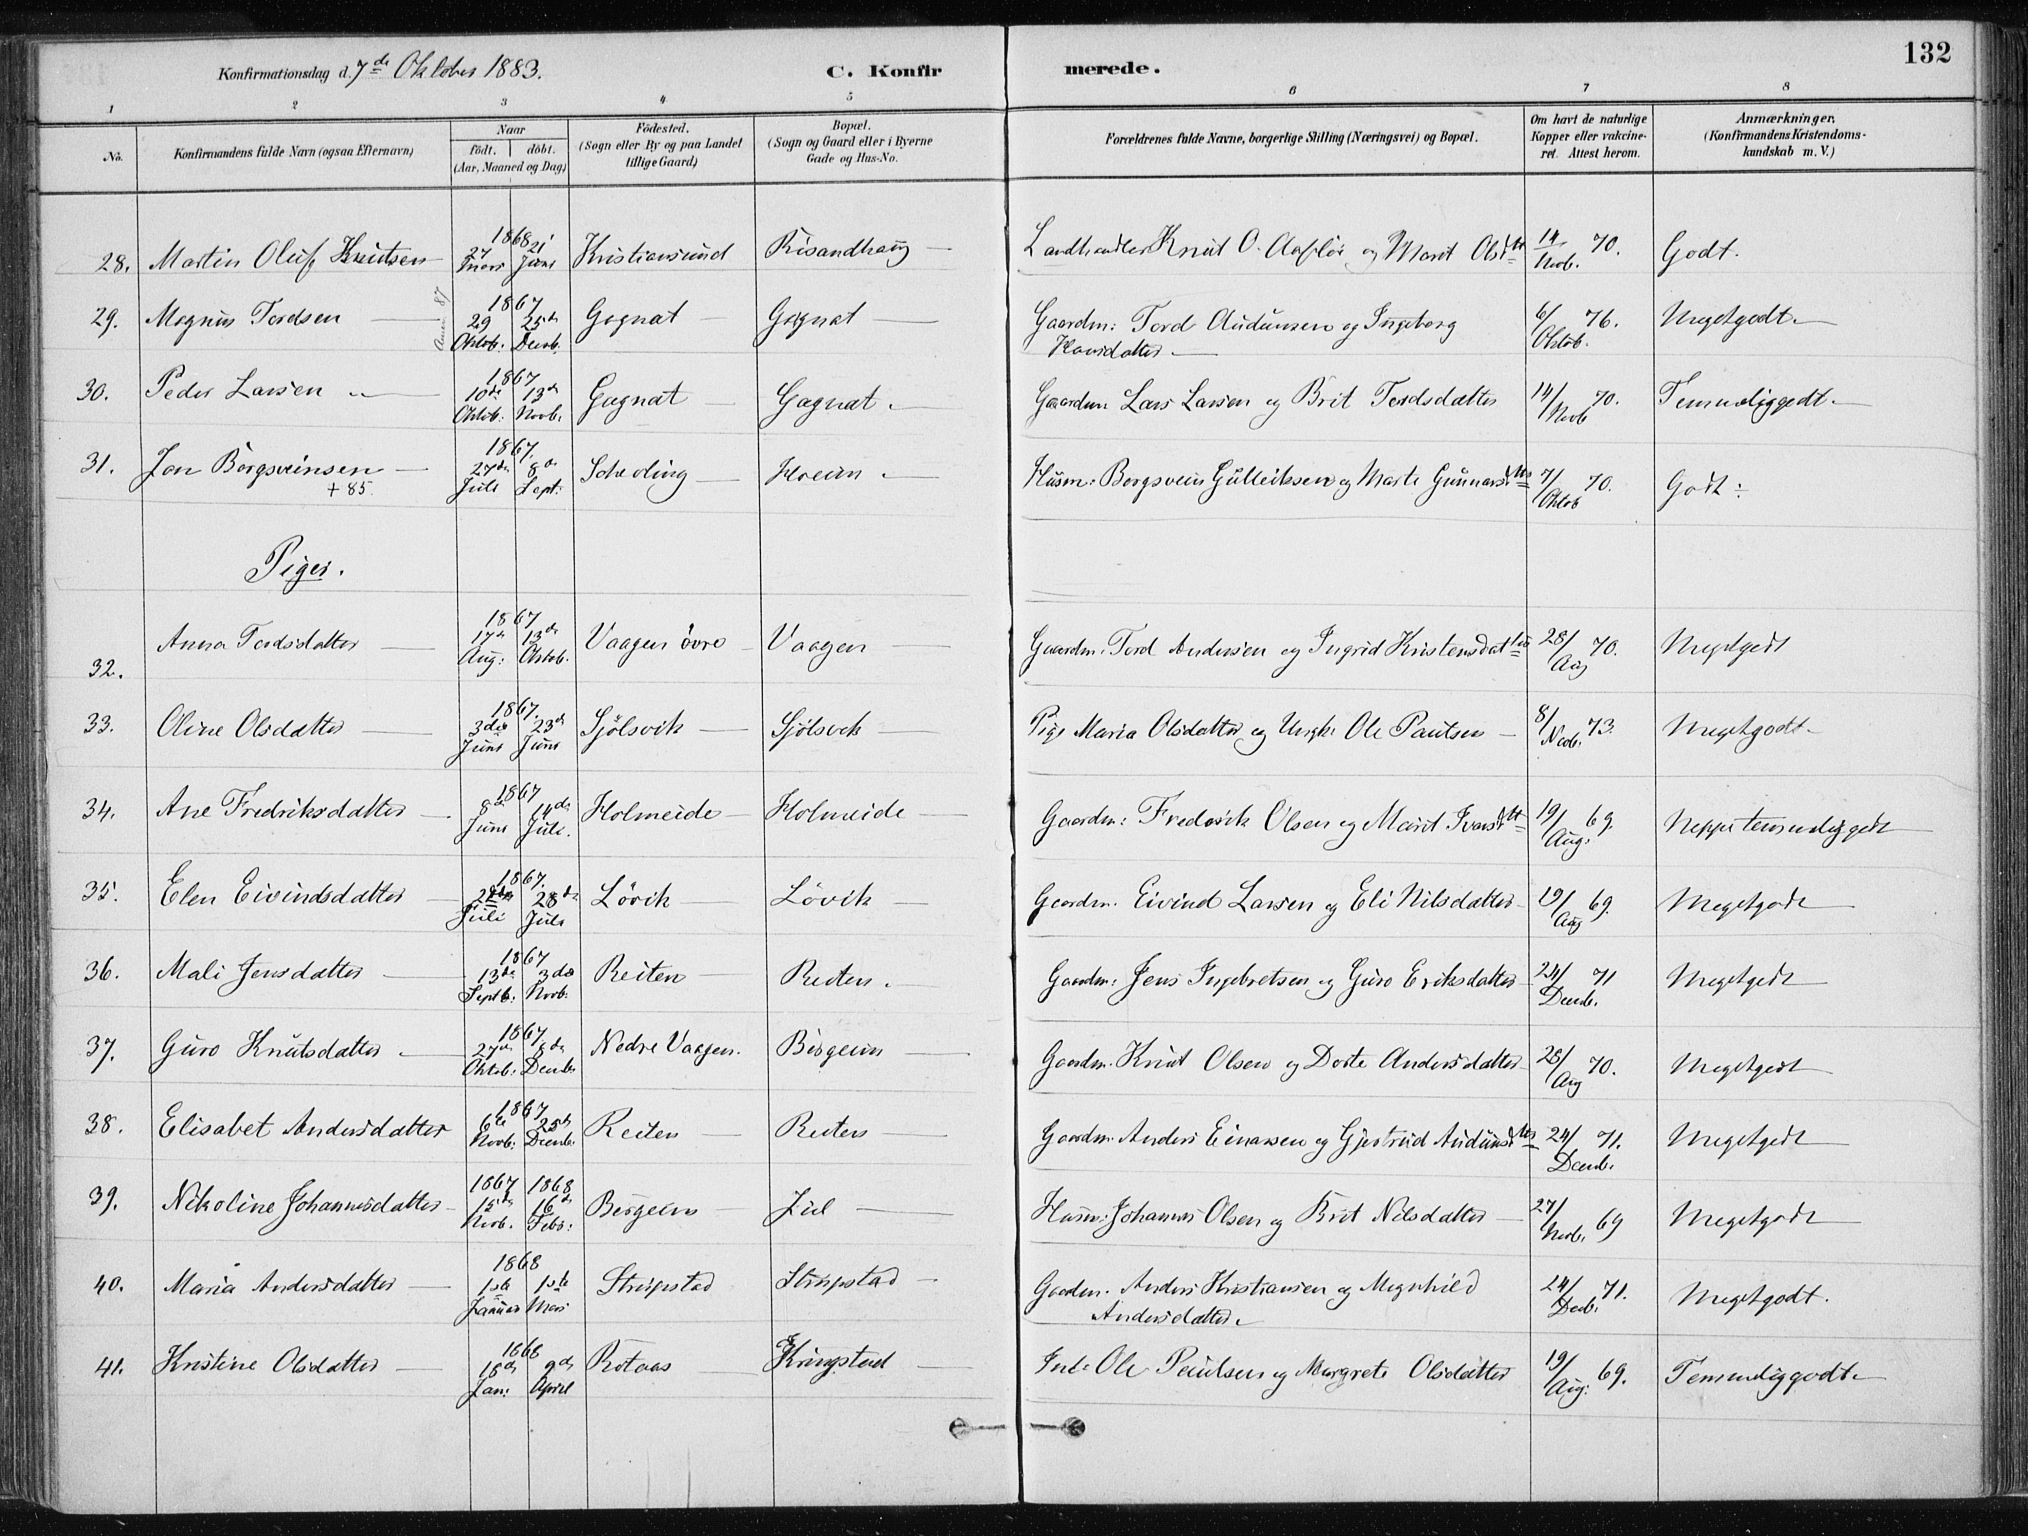 132
Konfirmationsdag d. 7de Oktober 1883.
C. Konfirmerede.
1 2 3 4 5 6 7 8
No. Konfirmandens fulde Navn (ogsaa Efternavn) Naar födt. döbt. (Aar, Maaned og Dag) Födested. (Sogn eller By og paa Landet tillige Gaard) Bopæl. (Sogn og Gaard eller i Byerne Gade og Hus-No. Forældrenes fulde Navne, borgerlige Stilling (Næringsvei) og Bopæl. Om havt de naturlige Kopper eller vakcineret. Attest herom. Anmærkninger. (Konfirmandens Kristendomskundskab m. V.)
28. Martin Oluf Knutsen 1868 27 Mars 21 Juni Kristiansund Risandhaug Landhandler Knut O. Aafløi og Marit Olsdtr 14/Novb. 70. Godt.
29. Magnus Tordsen 1867 29 Oktob. 25de Decb. Gagnat Gagnat Gaardm: Tord Audunsen og Ingeborg Hansdatter 6/Oktob. 76. Megetgodt
30. Peder Larsen 1867 10de Oktob. 13de Novb. Gagnat Gagnat. Gaardm. Lars Larsen og Brit Tordsdatter 14/Novb 70. Temmeliggodt.
31. Jon Bergsveinsen +85. 1867. 27de Juli 8de Sept: Hoem Husm: Bergsvein Gulleiksen og Marte Gunnarsdtr 7/Oktob 70. Godt
Piger.
32. Anna Tordsdatter 1867 17de Aug: 13de Oktob. Vaagen övre Vaagen Gaardm. Tord Andersen og Ingrid Kristensdatter 28/Aug 70. Megetgodt
33. Oline Olsdatter 1867. 3die Juni 23de Juni Sjölsvik Sjölsvik Pige Maria Olsdatter og Ungk: Ole Paulsen 8/Novb. 73. Megetgodt.
34. Ane Fredriksdatter 1867 8de Juni 14de Juli. Holmeide Holmeide Gaardm: Frederik Olsen og Marit Ivarsdtr 19/Aug. 69. Neppe temmeliggodt
35. Elen Eivindsdatter 1867. Juli 28de Juli Lövik Lövik Gaardm. Eivind Larsen og Eli Nilsdatter 19/Aug 69. Megetgodt
36. Mali Jensdatter 1867 13de Septb. 3die Novb. Reiten Reiten. Gaardm: Jens Ingebretsen og Guro Eriksdatter 24/Decmb. 71 Megetgodt
37. Guro Knutsdatter 1867 27de Oktob. 8de Decmb. Nedre Vaagen. Bergeim Gaardm. Knut Olsen og Dorte Andersdatter 28/Aug 70. Megetgodt
38. Elisabet Andersdatter 1867 6te Novb. 25de Decmb. Reiten Reiten Gaardm. Anders Einarsen og Gjertrud Audunsdtr 24/Decmb. 71. Megetgodt
39. Nikoline Johannesdatter 1867 15de Novb. 1868 16de Febr: Bergeim Husm: Johannes Olsen og Brit Nilsdatter 27/Novb. 69 Megetgodt
40. Maria Andersdatter 1868 1ste Januar 1ste Mars Strupstad Strupstad Gaardm. Anders Kristiansen og Magnhild Andersdatter. 24/Decb. 71. Megetgodt.
41. Kristine Olsdatter 1868 18de Jan: 9de April Rotaas Kringstad Ole Paulsen og Margrete Olsdatter 19/Aug: 69. Temmeliggodt.